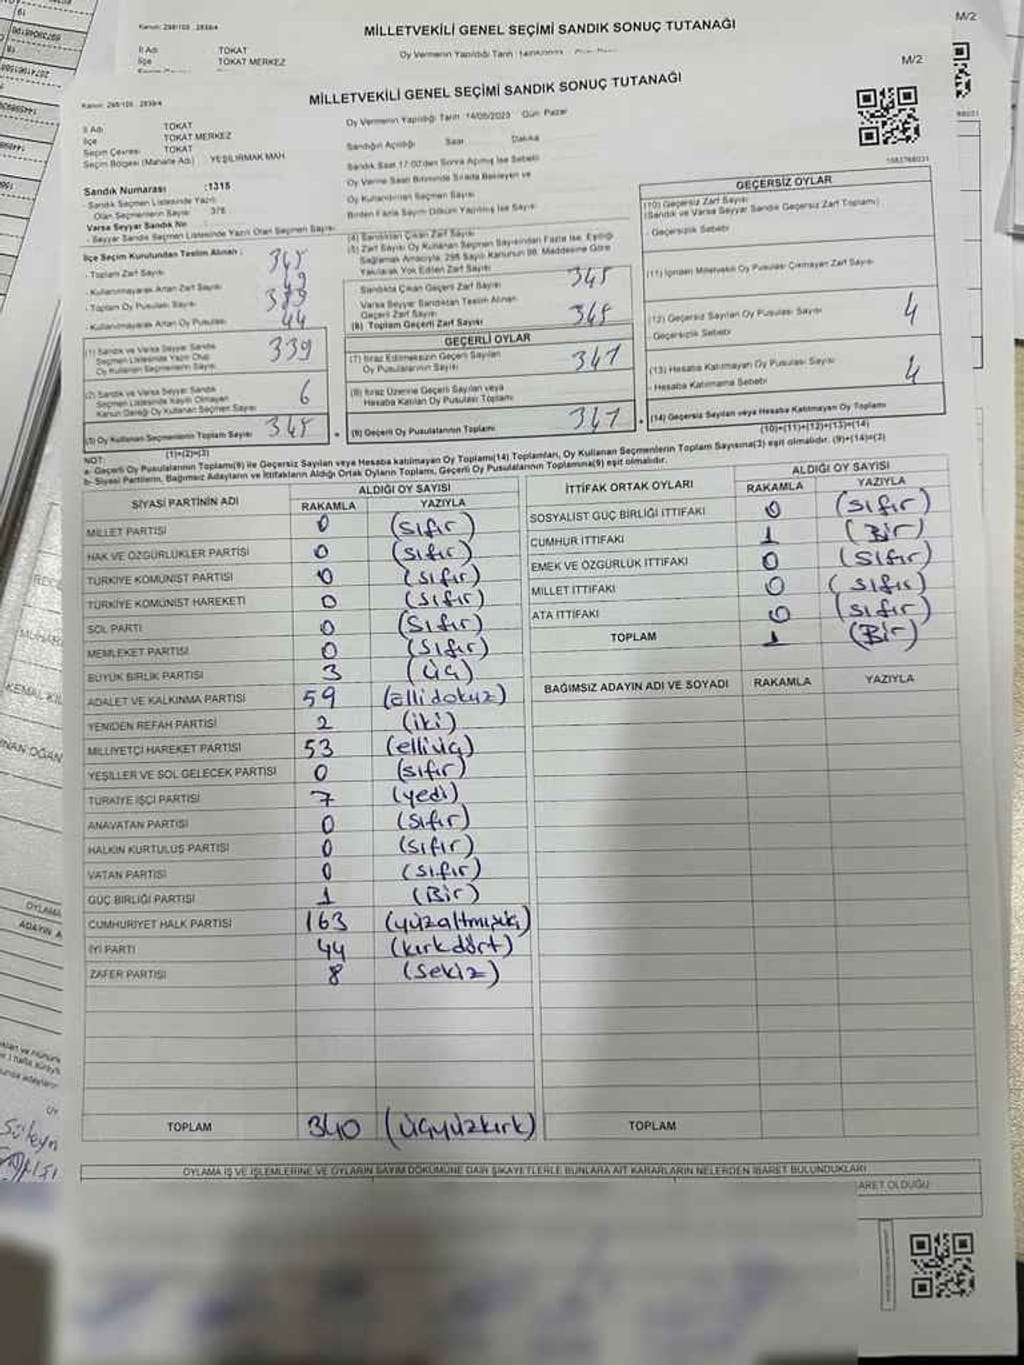 Kanun: 298/105 , 2839/4
MİLLETVEKİLİ GENEL SEÇİMİ SANDIK SONUÇ TUTANAĞI
M/2
İl Adı TOKAT
İlçe TOKAT MERKEZ
Oy Vermenin Yapıldığı Tarih
Kanun: 298/105 , 2839/4
MİLLETVEKİLİ GENEL SEÇİMİ SANDIK SONUÇ TUTANAĞI
M/2
İl Adı TOKAT
İlçe TOKAT MERKEZ
Seçim Çevresi TOKAT
Seçim Bölgesi (Mahalle Adı) YEŞİLIRMAK MAH.
Sandık Numarası :1315
- Sandık Seçmen Listesinde Yazılı
Olan Seçmenlerin Sayısı 378
Varsa Seyyar Sandık No
- Seyyar Sandık Seçmen Listesinde Yazılı Olan Seçmen Sayısı
İlçe Seçim Kurulundan Teslim Alınan :
- Toplam Zarf Sayısı
- Kullanılmayarak Artan Zarf Sayısı
- Toplam Oy Pusulası Sayısı
- Kullanılmayarak Artan Oy Pusulası 44
(1) Sandık ve Varsa Seyyar Sandık
Seçmen Listesinde Yazılı Olup
Oy Kullanan Seçmenlerin Sayısı 339
(2) Sandık ve Varsa Seyyar Sandık
Seçmen Listesinde Kayıtlı Olmayan
Kanun Gereği Oy Kullanan Seçmen Sayısı 6
(3) Oy Kullanan Seçmenlerin Toplam Sayısı 345
(1)+(2)=(3)
Oy Vermenin Yapıldığı Tarih 14/05/2023 Gün: Pazar
Sandığın Açıldığı Saat Dakika
Sandık Saat 17:00'den Sonra Açılmış İse Sebebi
Oy Verme Saati Bitiminde Sırada Bekleyen ve
Oy Kullandırılan Seçmen Sayısı
Birden Fazla Sayım Döküm Yapılmış İse Sayısı
(4) Sandıktan Çıkan Zarf Sayısı
(5) Zarf Sayısı Oy Kullanan Seçmen Sayısından Fazla İse, Eşitliği
Sağlamak Amacıyla, 298 Sayılı Kanunun 98. Maddesine Göre
Yakılarak Yok Edilen Zarf Sayısı
- Sandıkta Çıkan Geçerli Zarf Sayısı 345
Varsa Seyyar Sandıktan Teslim Alınan
Geçerli Zarf Sayısı
(6) Toplam Geçerli Zarf Sayısı 345
GEÇERLİ OYLAR
(7) İtiraz Edilmeksizin Geçerli Sayılan
Oy Pusulalarının Sayısı 341
(8) İtiraz Üzerine Geçerli Sayılan veya
Hesaba Katılan Oy Pusulası Toplamı
(9) Geçerli Oy Pusulalarının Toplamı 341
1583768031
GEÇERSİZ OYLAR
(10) Geçersiz Zarf Sayısı
(Sandık ve Varsa Seyyar Sandık Geçersiz Zarf Toplamı)
- Geçersizlik Sebebi
(11) İçinden Milletvekili Oy Pusulası Çıkmayan Zarf Sayısı
(12) Geçersiz Sayılan Oy Pusulası Sayısı 4
- Geçersizlik Sebebi
(13) Hesaba Katılmayan Oy Pusulası Sayısı
- Hesaba Katılmama Sebebi 4
(14) Geçersiz Sayılan veya Hesaba Katılmayan Oy Toplamı
(10)+(11)+(12)+(13)=(14)
NOT:
a- Geçerli Oy Pusulalarının Toplamı(9) ile Geçersiz Sayılan veya Hesaba katılmayan Oy Toplamı(14) Toplamları, Oy Kullanan Seçmenlerin Toplam Sayısına(3) eşit olmalıdır. (9)+(14)=(3)
b- Siyasi Partilerin, Bağımsız Adayların ve İttifakların Aldığı Ortak Oyların Toplamı, Geçerli Oy Pusulalarının Toplamına(9) eşit olmalıdır.
SİYASİ PARTİNİN ADI ALDIĞI OY SAYISI
RAKAMLA YAZIYLA
MİLLET PARTİSİ 0 (sıfır)
HAK VE ÖZGÜRLÜKLER PARTİSİ 0 (sıfır)
TÜRKİYE KOMÜNİST PARTİSİ 0 (sıfır)
TÜRKİYE KOMÜNİST HAREKETİ 0 (sıfır)
SOL PARTİ 0 (sıfır)
MEMLEKET PARTİSİ 0 (sıfır)
BÜYÜK BİRLİK PARTİSİ 3 (üç)
ADALET VE KALKINMA PARTİSİ 59 (ellidokuz)
YENİDEN REFAH PARTİSİ 2 (iki)
MİLLİYETÇİ HAREKET PARTİSİ 53 (elliüç)
YEŞİLLER VE SOL GELECEK PARTİSİ 0 (sıfır)
TÜRKİYE İŞÇİ PARTİSİ 7 (yedi)
ANAVATAN PARTİSİ 0 (sıfır)
HALKIN KURTULUŞ PARTİSİ 0 (sıfır)
VATAN PARTİSİ 0 (sıfır)
GÜÇ BİRLİĞİ PARTİSİ 1 (Bir)
CUMHURİYET HALK PARTİSİ 163 (yüzaltmışüç)
İYİ PARTİ 44 (kırkdört)
ZAFER PARTİSİ 8 (sekiz)
TOPLAM 340 (üçyüzkırk)
İTTİFAK ORTAK OYLARI ALDIĞI OY SAYISI
RAKAMLA YAZIYLA
SOSYALİST GÜÇ BİRLİĞİ İTTİFAKI 0 (sıfır)
CUMHUR İTTİFAKI 1 (Bir)
EMEK VE ÖZGÜRLÜK İTTİFAKI 0 (sıfır)
MİLLET İTTİFAKI 0 (sıfır)
ATA İTTİFAKI 0 (sıfır)
TOPLAM 1 (Bir)
BAĞIMSIZ ADAYIN ADI VE SOYADI RAKAMLA YAZIYLA
TOPLAM
OYLAMA İŞ VE İŞLEMLERİNE VE OYLARIN SAYIM DÖKÜMÜNE DAİR ŞİKAYETLERLE BUNLARA AİT KARARLARIN NELERDEN İBARET BULUNDUKLARI
ARET OLDUĞU